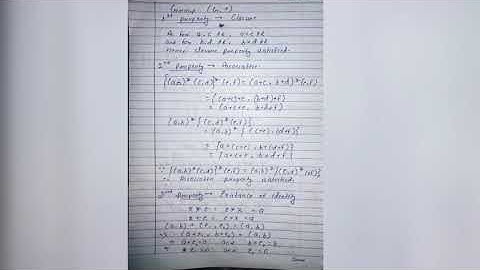 1st Property → Closure
As for a, c ∈ R, a+c ∈ R
and for b, d ∈ R, b+d ∈ R
Hence closure property satisfied.
2nd Property → Associative
[(a,b)*(c,d)]*(e,f) = (a+c, b+d)*(e,f)
= {(a+c)+e, (b+d)+f}
= {a+c+e, b+d+f}
(a,b)*{(c,d)*(e,f)}
= (a,b)*{(c+e), (d+f)}
= {a+(c+e), b+(d+f)}
= {a+c+e, b+d+f}
∵ [(a,b)*(c,d)]*(e,f) = (a,b)*[(c,d)*(e,f)]
∴ Associative property satisfied.
Property → Existence of identity
(a,b) * (e₁, e₂) = (a,b)
(a+e₁, b+e₂) = (a,b)
a+e₁=a and b+e₂=b
e₁=0 and e₂=0